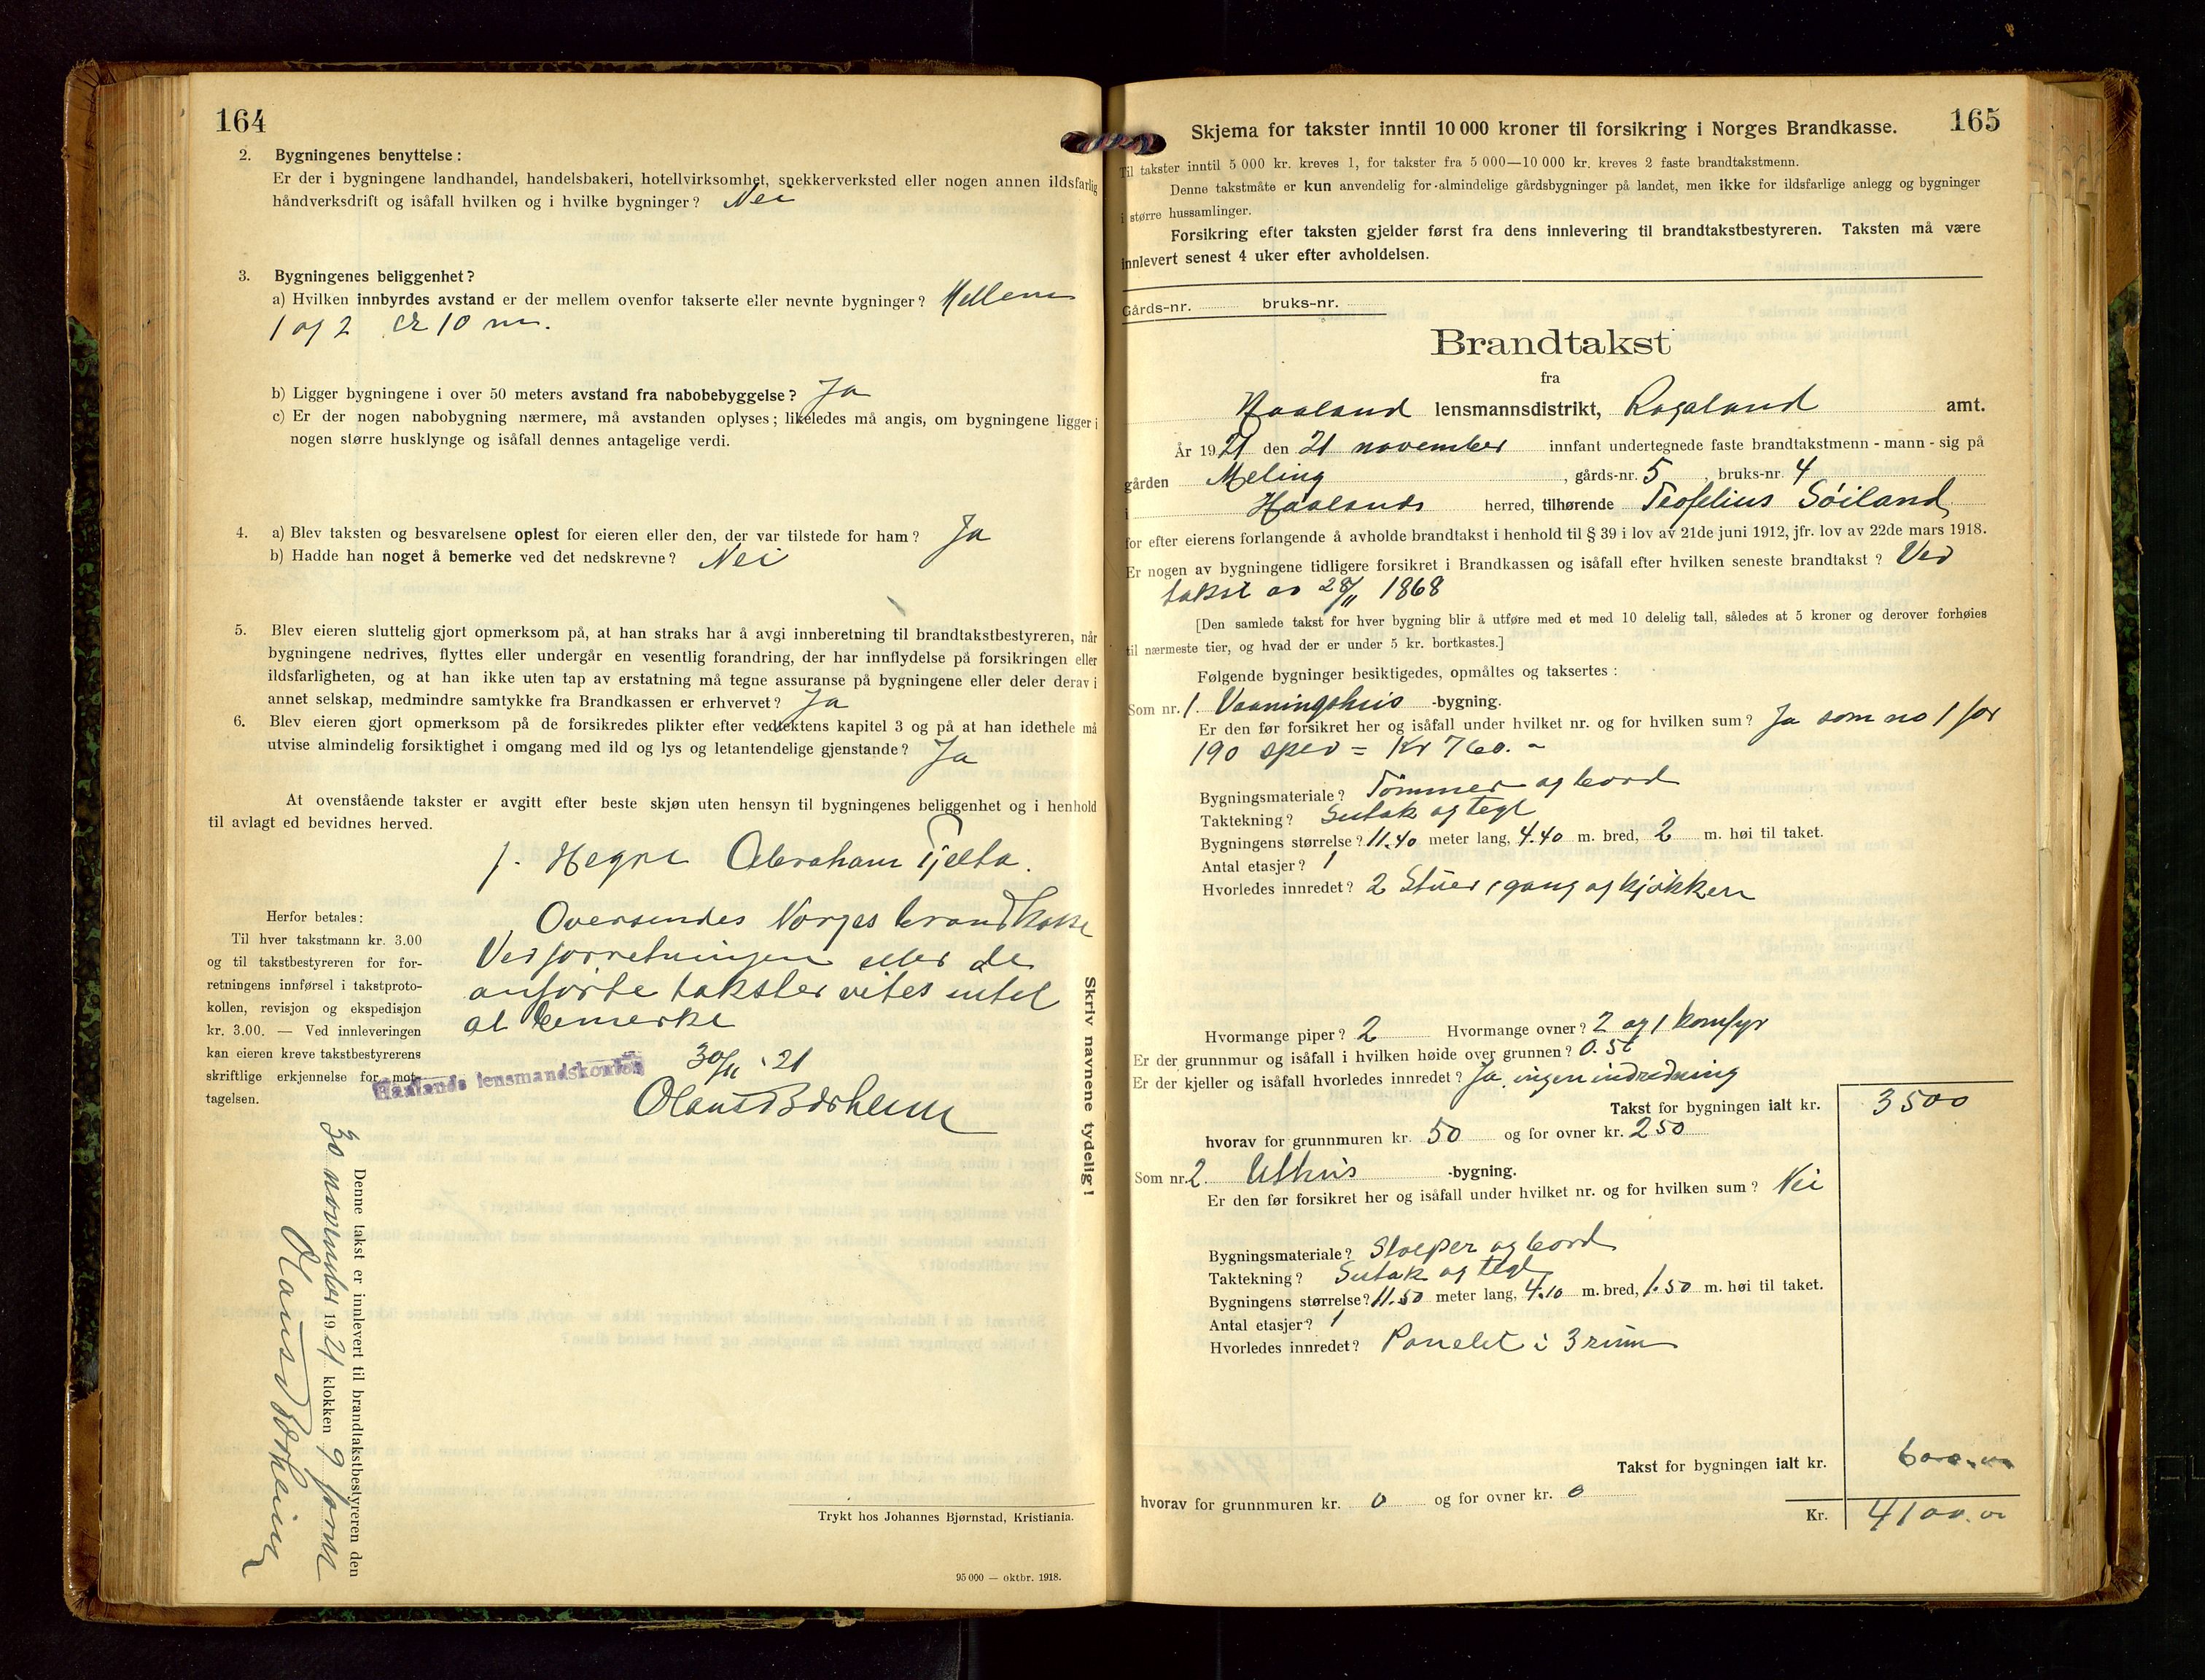 164
2. Bygningenes benyttelse:
Er der i bygningene landhandel, handelsbakeri, hotellvirksomhet, snekkerverksted eller nogen annen ildsfarlig
håndverksdrift og isåfall hvilken og i hvilke bygninger? Nei
3. Bygningenes beliggenhet?
a) Hvilken innbyrdes avstand er der mellem ovenfor takserte eller nevnte bygninger? Mellem
1 og 2 er 10 m.
b) Ligger bygningene i over 50 meters avstand fra nabobebyggelse? Ja
c) Er der nogen nabobygning nærmere, må avstanden oplyses; likeledes må angis, om bygningene ligger i
nogen større husklynge og isåfall dennes antagelige verdi.
4. a) Blev taksten og besvarelsene oplest for eieren eller den, der var tilstede for ham? Ja
b) Hadde han noget å bemerke ved det nedskrevne? Nei
5. Blev eieren sluttelig gjort opmerksom på, at han straks har å avgi innberetning til brandtakstbestyreren, når
bygningene nedrives, flyttes eller undergår en vesentlig forandring, der har innflydelse på forsikringen eller
ildsfarligheten, og at han ikke uten tap av erstatning må tegne assuranse på bygningene eller deler derav i
annet selskap, medmindre samtykke fra Brandkassen er erhvervet? Ja
6. Blev eieren gjort opmerksom på de forsikredes plikter efter vedtektens kapitel 3 og på at han idethele må
utvise almindelig forsiktighet i omgang med ild og lys og letantendelige gjenstande? Ja
At ovenstående takster er avgitt efter beste skjøn uten hensyn til bygningenes beliggenhet og i henhold
til avlagt ed bevidnes herved.
J. Hegre Abraham Tjelta.
Oversendes Norges brandkasse
Ved forretningen eller de
anførte takster vites intet
at bemerke
30/11 - 21
Haalands lensmandskontor
Olaus Bærheim
Herfor betales:
Til hver takstmann kr. 3.00
og til takstbestyreren for for-
retningens innførsel i takstproto-
kollen, revisjon og ekspedisjon
kr. 3.00. — Ved innleveringen
kan eieren kreve takstbestyrerens
skriftlige erkjennelse for mot-
tagelsen.
Denne takst er innlevert til brandtakstbestyreren den
30 november 1921 klokken 9 form
Olaus Bærheim
Skriv navnene tydelig!
Trykt hos Johannes Bjørnstad, Kristiania.
95 000 — oktbr. 1918.
165
Skjema for takster inntil 10 000 kroner til forsikring i Norges Brandkasse.
Til takster inntil 5 000 kr. kreves 1, for takster fra 5 000—10 000 kr. kreves 2 faste brandtakstmenn.
Denne takstmåte er kun anvendelig for almindelige gårdsbygninger på landet, men ikke for ildsfarlige anlegg og bygninger
i større hussamlinger.
Forsikring efter taksten gjelder først fra dens innlevering til brandtakstbestyreren. Taksten må være
innlevert senest 4 uker efter avholdelsen.
Gårds-nr. bruks-nr.
Brandtakst
fra
Haaland lensmannsdistrikt, Rogaland amt.
År 1921 den 21 november innfant undertegnede faste brandtakstmenn - mann - sig på
gården Meling, gårds-nr. 5, bruks-nr. 4
i Haalands herred, tilhørende Teofelius Söiland
for efter eierens forlangende å avholde brandtakst i henhold til § 39 i lov av 21de juni 1912, jfr. lov av 22de mars 1918.
Er nogen av bygningene tidligere forsikret i Brandkassen og isåfall efter hvilken seneste brandtakst? Ved
takst av 28/11 1868
[Den samlede takst for hver bygning blir å utføre med et med 10 delelig tall, således at 5 kroner og derover forhøies
til nærmeste tier, og hvad der er under 5 kr. bortkastes.]
Følgende bygninger besiktigedes, opmåltes og taksertes:
Som nr. 1. Vaaningshus -bygning.
Er den før forsikret her og isåfall under hvilket nr. og for hvilken sum? Ja som no 1 for
190 spd = Kr 760. -
Bygningsmateriale? Tømmer og bord
Taktekning? Sutak og tegl
Bygningens størrelse? 11.40 meter lang, 4.40 m. bred, 2 m. høi til taket.
Antal etasjer? 1
Hvorledes innredet? 2 Stuer, gang og kjøkken
Hvormange piper? 2 Hvormange ovner? 2 og 1 komfyr
Er der grunnmur og isåfall i hvilken høide over grunnen?
Er der kjeller og isåfall hvorledes innredet? Ja, ingen indredning
Takst for bygningen ialt kr. 3500
hvorav for grunnmuren kr. 50 og for ovner kr. 250
Som nr. 2. Uthus -bygning.
Er den før forsikret her og isåfall under hvilket nr. og for hvilken sum? Nei
Bygningsmateriale? Stolper og bord
Taktekning? Sutak og tegl
Bygningens størrelse? 11.50 meter lang, 4.10 m. bred, 1.50 m. høi til taket.
Antal etasjer? 1
Hvorledes innredet? Panelet i 3 rum
Takst for bygningen ialt kr. 600.00
hvorav for grunnmuren kr. 0 og for ovner kr. 0
Kr. 4100.00